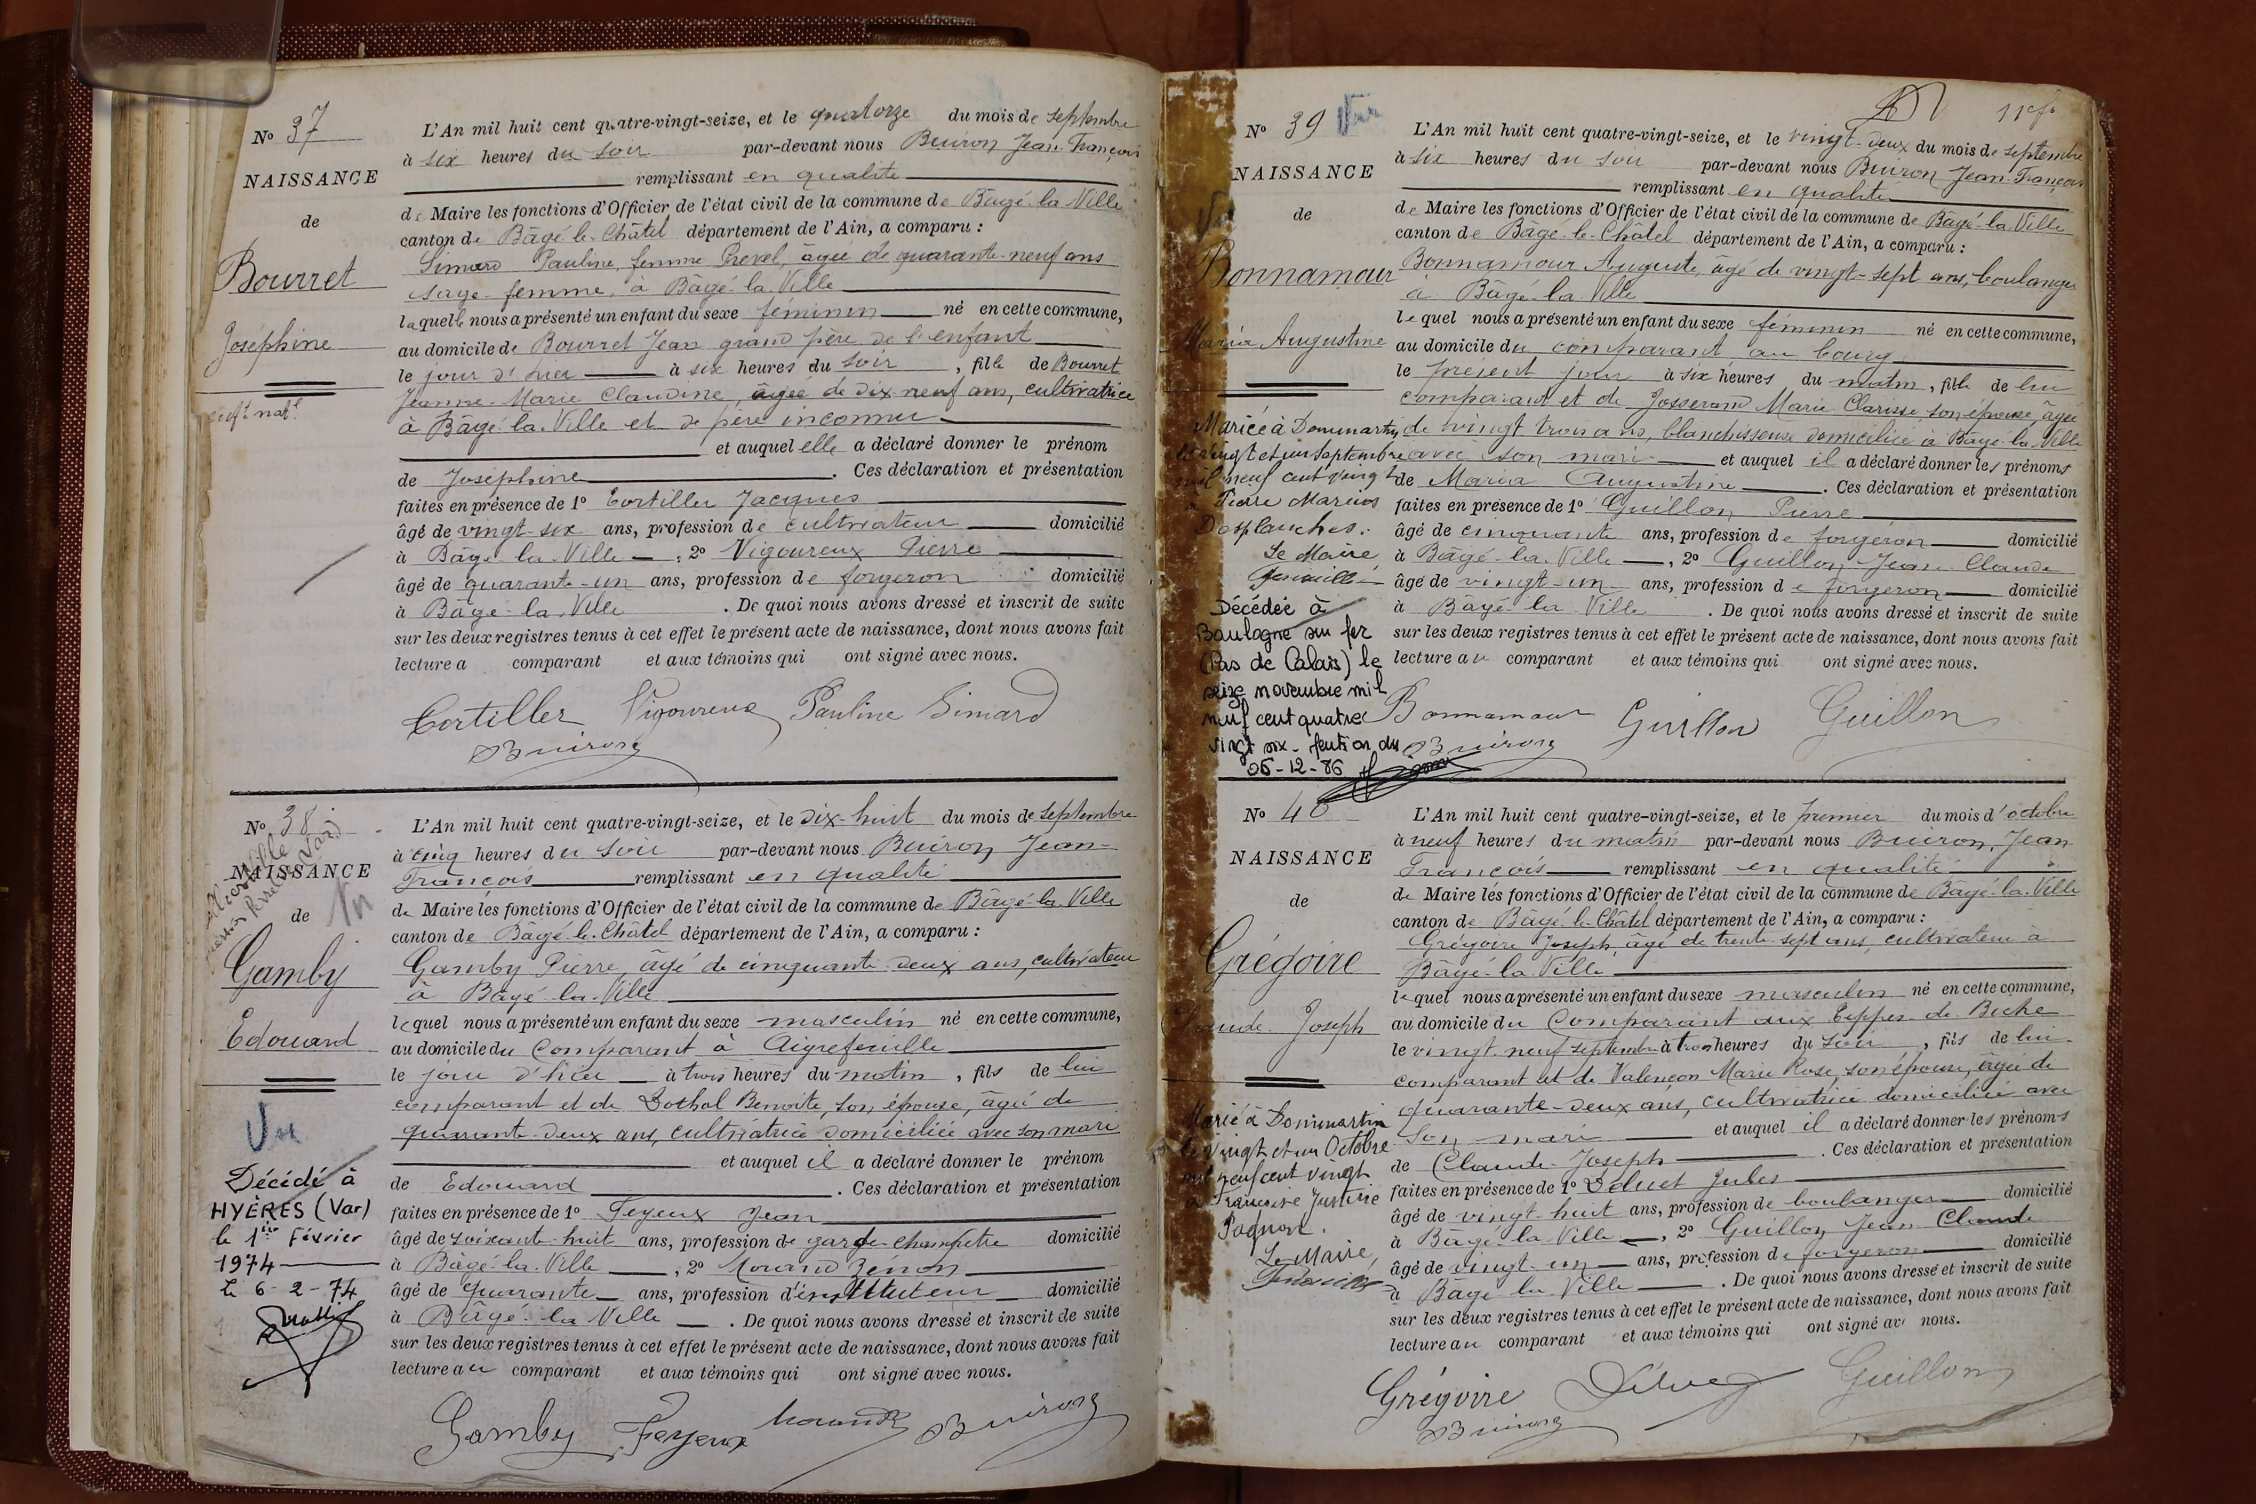 N° 37
NAISSANCE
de
Bourret
Joséphine
L'An mil huit cent quatre-vingt-seize, et le quatorze du mois de septembre
à six heures du soir par-devant nous Buiron Jean François
remplissant en qualité
de Maire les fonctions d'Officier de l'état civil de la commune de Bâgé-la-Ville
canton de Bâgé-le-Châtel département de l'Ain, a comparu :
Simard Pauline, femme Prevel, âgée de quarante-neuf ans
sage-femme, à Bâgé-la-Ville
laquelle nous a présenté un enfant du sexe féminin né en cette commune,
au domicile de Bourret Jean grand père de l'enfant
le jour d'hier à six heures du soir, fille de Bourret
Jeanne-Marie Claudine, âgée de dix neuf ans, cultivatrice
à Bâgé-la-Ville et de père inconnu
et auquel elle a déclaré donner le prénom
de Joséphine. Ces déclaration et présentation
faites en présence de 1° Tortiller Jacques
âgé de vingt-six ans, profession de cultivateur domicilié
à Bâgé-la-Ville, 2° Vigoureux Pierre
âgé de quarante-un ans, profession de forgeron domicilié
à Bâgé-la-Ville. De quoi nous avons dressé et inscrit de suite
sur les deux registres tenus à cet effet le présent acte de naissance, dont nous avons fait
lecture a comparant et aux témoins qui ont signé avec nous.
Tortiller Vigoureux Pauline Simard
Buiron
N° 38
NAISSANCE
de
Gamby
Edouard
Vu
Décédé à
HYÈRES (Var)
le 1er Février
1974
le 6-2-74
L'An mil huit cent quatre-vingt-seize, et le dix-huit du mois de septembre
à cinq heures du soir par-devant nous Buiron Jean-
François remplissant en qualité
de Maire les fonctions d'Officier de l'état civil de la commune de Bâgé-la-Ville
canton de Bâgé-le-Châtel département de l'Ain, a comparu :
Gamby Pierre, âgé de cinquante-deux ans, cultivateur
à Bâgé-la-Ville
lequel nous a présenté un enfant du sexe masculin né en cette commune,
au domicile du comparant à Aigrefeuille
le jour d'hier à trois heures du matin, fils de lui
comparant et de Dothal Benoite, son épouse, âgée de
quarante-deux ans, cultivatrice domiciliée avec son mari
et auquel il a déclaré donner le prénom
de Edouard. Ces déclaration et présentation
faites en présence de 1° Feyeux Jean
âgé de soixante-huit ans, profession de garde-champêtre domicilié
à Bâgé-la-Ville, 2° Morand Zenon
âgé de quarante ans, profession d'instituteur domicilié
à Bâgé-la-Ville. De quoi nous avons dressé et inscrit de suite
sur les deux registres tenus à cet effet le présent acte de naissance, dont nous avons fait
lecture au comparant et aux témoins qui ont signé avec nous.
Gamby Feyeux Morand Buiron
N° 39 Vu
NAISSANCE
de
Bonnamour
Maria Augustine
Mariée à Dommartin
le vingt et un septembre
mil neuf cent vingt
à Pierre Marius
Desplanches.
Le Maire
Décédée à
Boulogne sur Mer
(Pas de Calais) le
seize novembre mil
neuf cent quatre
vingt six - mention du
06-12-86
L'An mil huit cent quatre-vingt-seize, et le vingt-deux du mois de septembre
à six heures du soir par-devant nous Buiron Jean-François
remplissant en qualité
de Maire les fonctions d'Officier de l'état civil de la commune de Bâgé-la-Ville
canton de Bâgé-le-Châtel département de l'Ain, a comparu :
Bonnamour Auguste, âgé de vingt-sept ans, boulanger
à Bâgé-la-Ville
lequel nous a présenté un enfant du sexe féminin né en cette commune,
au domicile du comparant au bourg
le présent jour à six heures du matin, fille de lui
comparant et de Josserand Marie Clarisse son épouse, âgée
de vingt trois ans, blanchisseuse domiciliée à Bâgé-la-Ville
avec son mari et auquel il a déclaré donner les prénoms
de Maria Augustine. Ces déclaration et présentation
faites en présence de 1° Guillon Pierre
âgé de cinquante ans, profession de forgeron domicilié
à Bâgé-la-Ville, 2° Guillon Jean Claude
âgé de vingt-un ans, profession de forgeron domicilié
à Bâgé la Ville. De quoi nous avons dressé et inscrit de suite
sur les deux registres tenus à cet effet le présent acte de naissance, dont nous avons fait
lecture au comparant et aux témoins qui ont signé avec nous.
Bonnamour Guillon Guillon
Buiron
N° 40
NAISSANCE
de
Grégoire
Claude Joseph
Marié à Dommartin
le vingt et un Octobre
mil neuf cent vingt
à Françoise Justine
Pagnon.
Le Maire,
L'An mil huit cent quatre-vingt-seize, et le premier du mois d'octobre
à neuf heures du matin par-devant nous Buiron, Jean
François remplissant en qualité
de Maire les fonctions d'Officier de l'état civil de la commune de Bâgé-la-Ville
canton de Bâgé-le-Châtel département de l'Ain, a comparu :
Grégoire Joseph, âgé de trente-sept ans, cultivateur à
Bâgé-la-Ville
lequel nous a présenté un enfant du sexe masculin né en cette commune,
au domicile du comparant aux Teppes-de-Biche
le vingt-neuf septembre à trois heures du soir, fils de lui
comparant et de Valençon Marie Rose, son épouse, âgée de
quarante-deux ans, cultivatrice domiciliée avec
son mari et auquel il a déclaré donner les prénoms
de Claude-Joseph. Ces déclaration et présentation
faites en présence de 1° Déluet Jules
âgé de vingt-huit ans, profession de boulanger domicilié
à Bâgé-la-Ville, 2° Guillon Jean Claude
âgé de vingt-un ans, profession de forgeron domicilié
à Bâgé la Ville. De quoi nous avons dressé et inscrit de suite
sur les deux registres tenus à cet effet le présent acte de naissance, dont nous avons fait
lecture au comparant et aux témoins qui ont signé avec nous.
Grégoire Guillon
Buiron